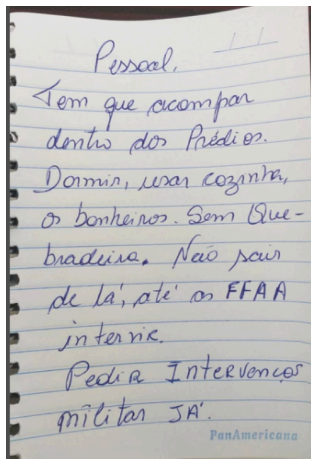 Pessoal,
Tem que acampar
dentro dos Prédios.
Dormir, usar cozinha,
os banheiros. Sem Que-
bradeira. Não sair
de lá, até as FFAA
intervir.
Pedir Intervençao
militar JÁ.
PanAmericana